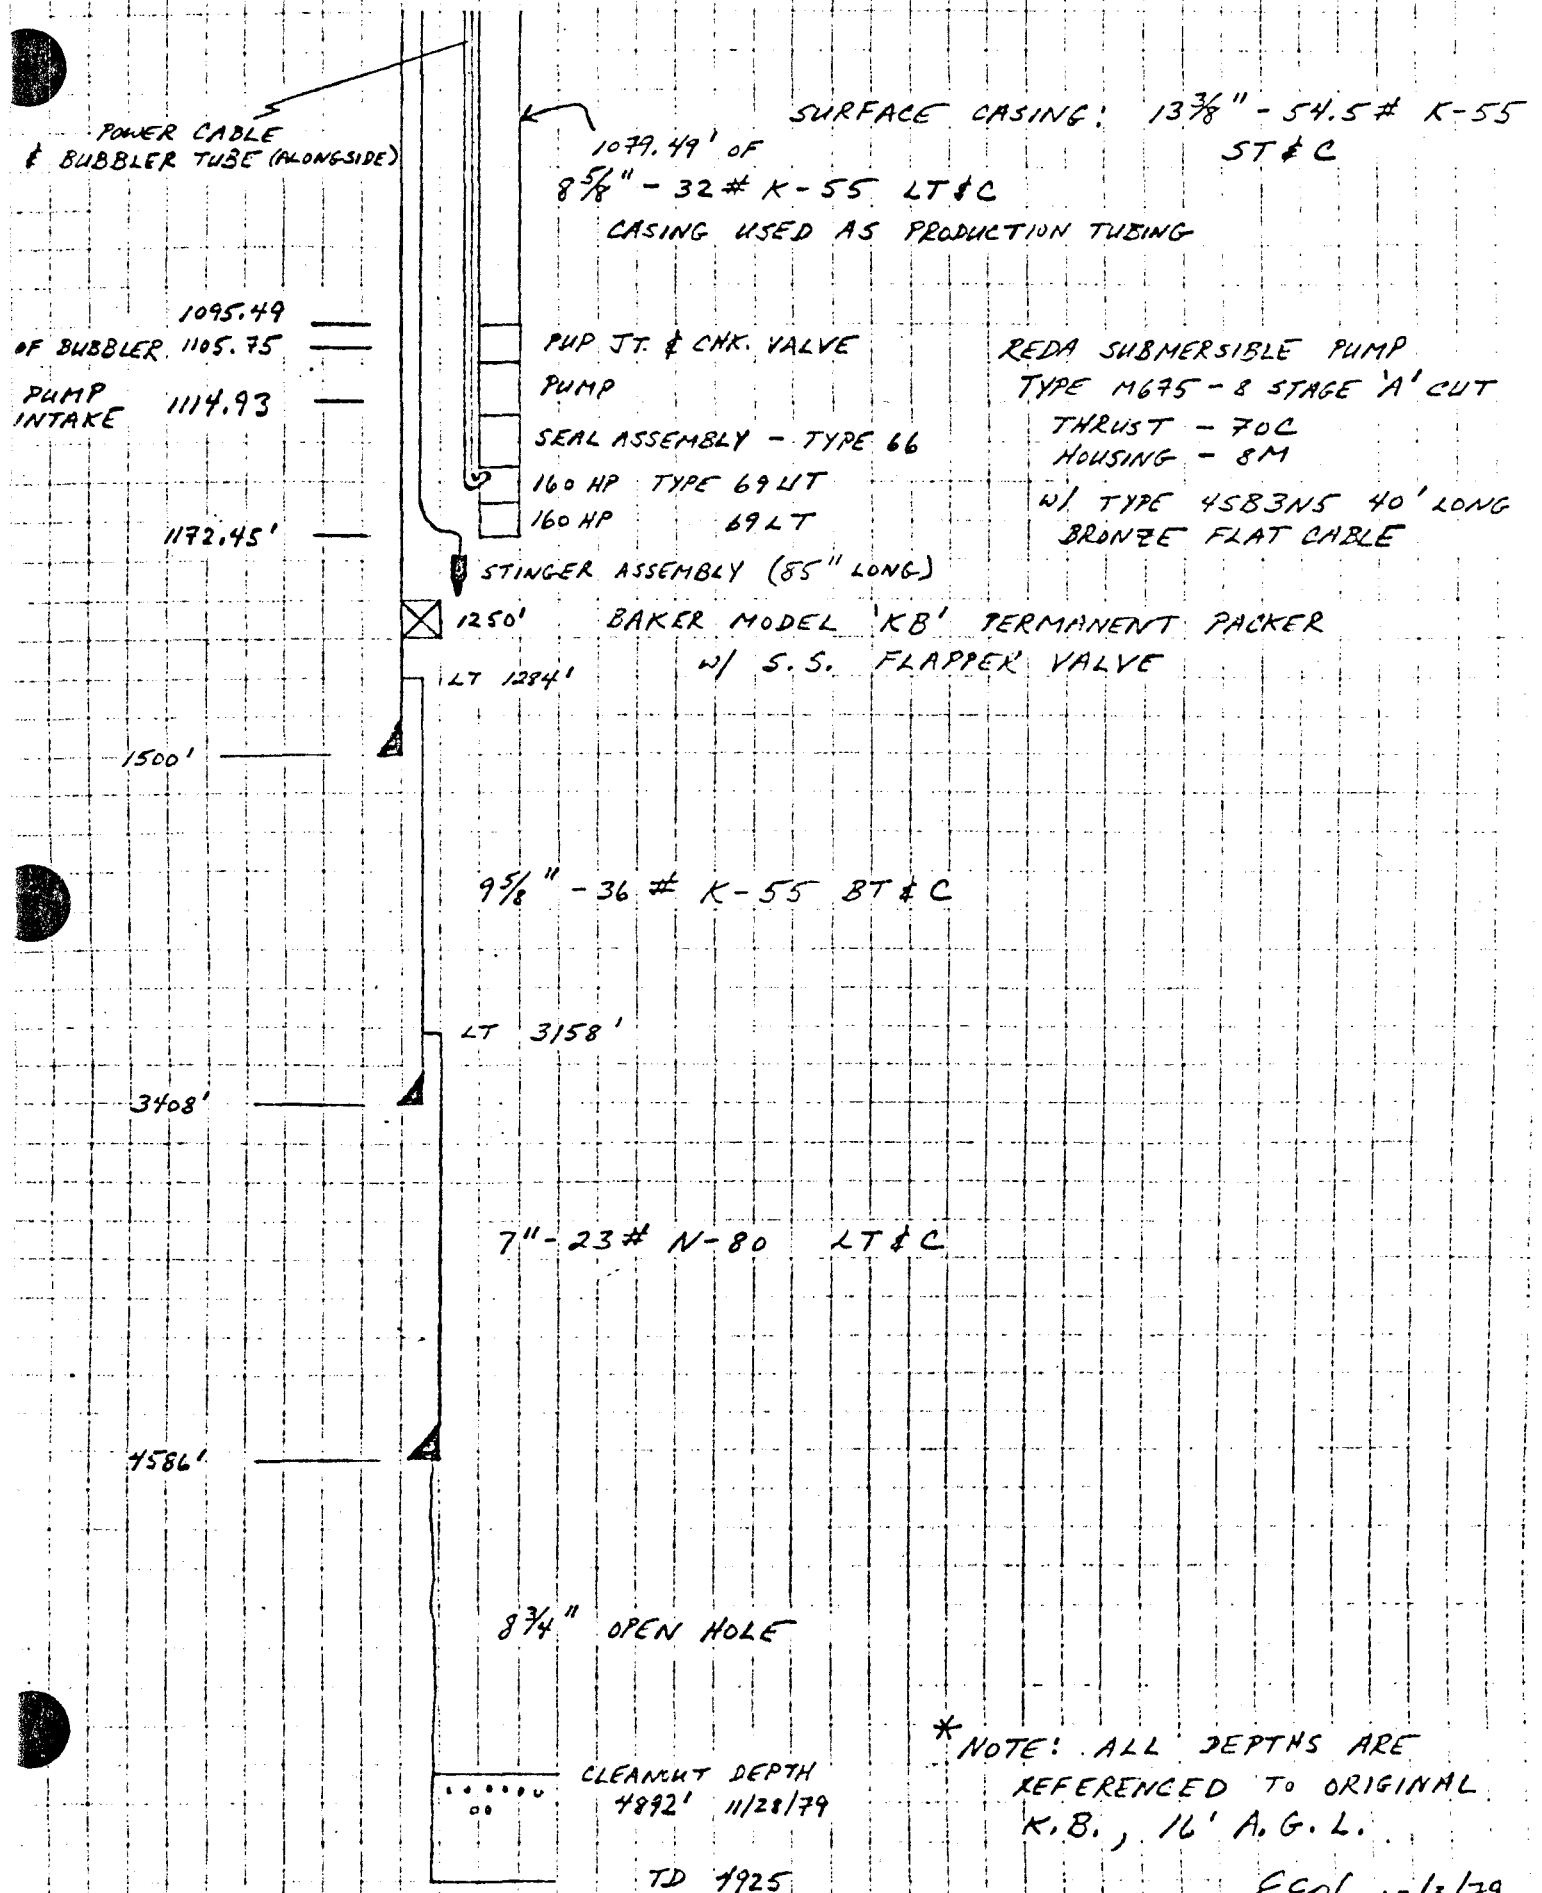 POWER CABLE
& BUBBLER TUBE (ALONGSIDE)
SURFACE CASING: 13 3/8" - 54.5# K-55
ST & C
1079.49' OF
8 5/8" - 32# K-55 LT & C
CASING USED AS PRODUCTION TUBING
1095.49
OF BUBBLER 1105.75
PUMP
INTAKE 1114.93
1172.45'
PUP JT. & CHK. VALVE
PUMP
SEAL ASSEMBLY - TYPE 66
160 HP TYPE 69 UT
160 HP 69 LT
REDA SUBMERSIBLE PUMP
TYPE M675 - 8 STAGE 'A' CUT
THRUST - 70C
HOUSING - 8M
W/ TYPE 4SB3N5 40' LONG
BRONZE FLAT CABLE
STINGER ASSEMBLY (85" LONG)
1250' BAKER MODEL 'KB' PERMANENT PACKER
W/ S.S. FLAPPER VALVE
LT 1284'
1500'
9 5/8" - 36# K-55 BT & C
LT 3158'
3408'
7" - 23# N-80 LT & C
4586'
8 3/4" OPEN HOLE
CLEANOUT DEPTH
4892' 11/28/79
TD 4925
* NOTE: ALL DEPTHS ARE
REFERENCED TO ORIGINAL
K.B., 16' A.G.L.